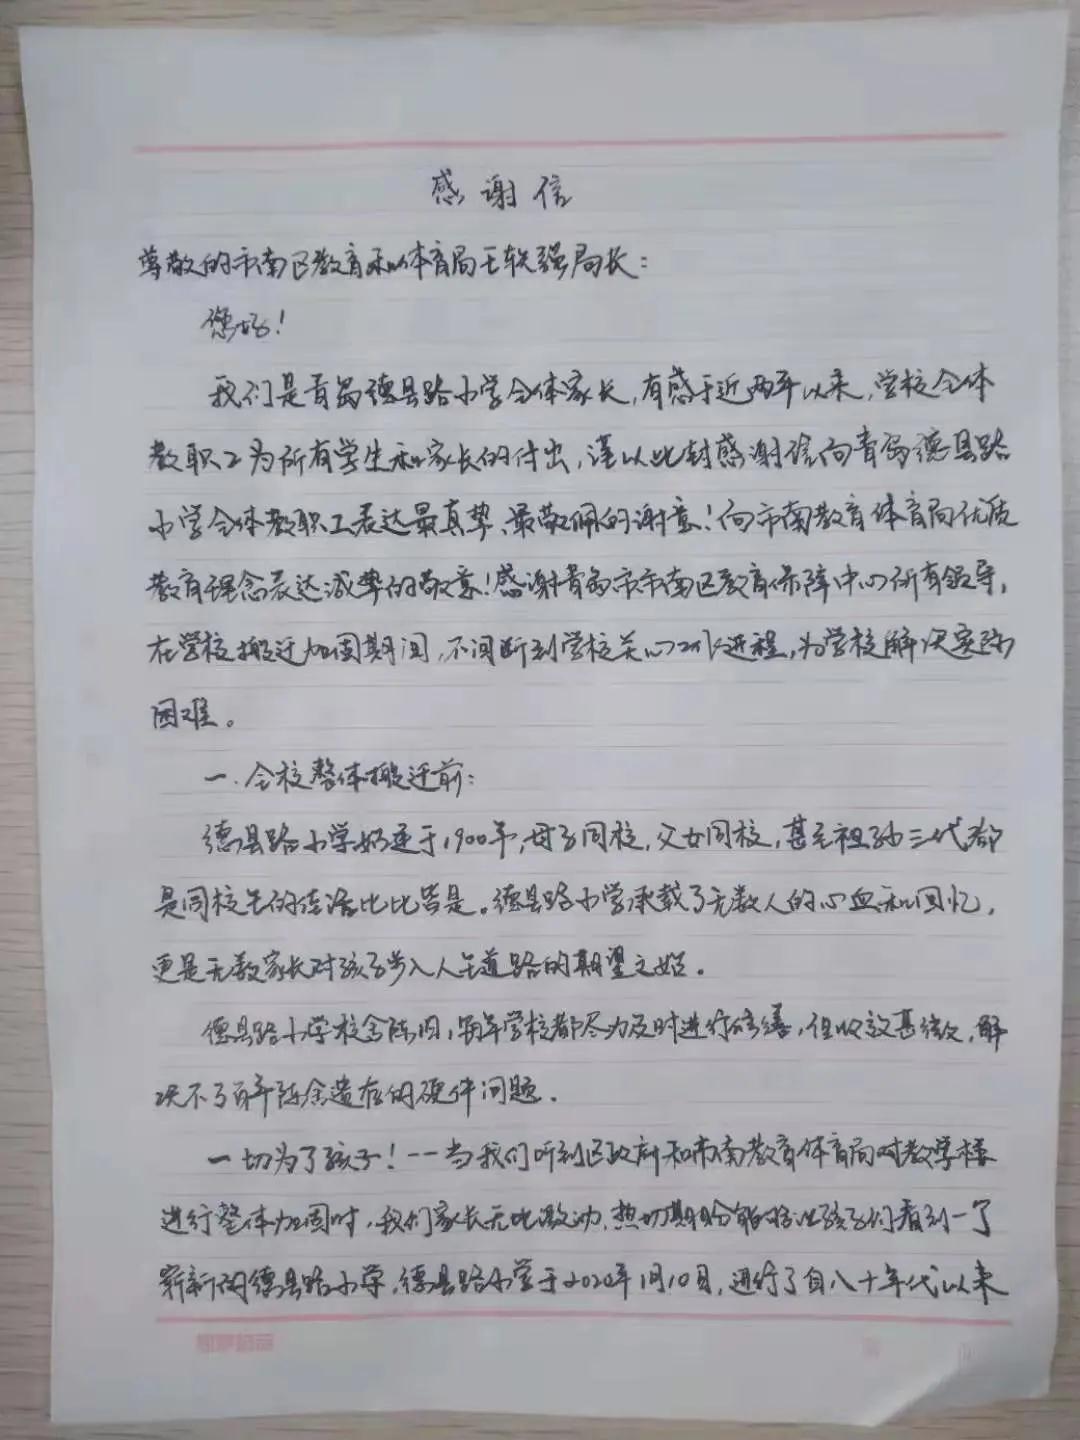 感谢信
尊敬的市南区教育和体育局王轶强局长：
您好！
我们是青岛德县路小学全体家长，有感于近两年以来，学校全体
教职工为所有学生和家长的付出，谨以此封感谢信向青岛德县路
小学全体教职工表达最真挚、最敬佩的谢意！向市南教育体育局优质
教育理念表达诚挚的敬意！感谢青岛市市南区教育保障中心所有领导，
在学校搬迁加固期间，不间断到学校关心工作进程，为学校解决实际
困难。
一.全校整体搬迁前：
德县路小学始建于1900年，母子同校，父女同校，甚至祖孙三代都
是同校生的佳话比比皆是。德县路小学承载了无数人的心血和回忆，
更是无数家长对孩子步入人生道路的期望之始。
德县路小学校舍陈旧，每年学校都尽力及时进行修缮，但收效甚微，解
决不了百年陈舍遗存的硬件问题.
一切为了孩子！--当我们听到区政府和市南教育体育局对教学楼
进行整体加固时，我们家长无比激动.热切期盼能够让孩子们看到一个
崭新的德县路小学.德县路小学于2020年1月10日，进行了自八十年代以来